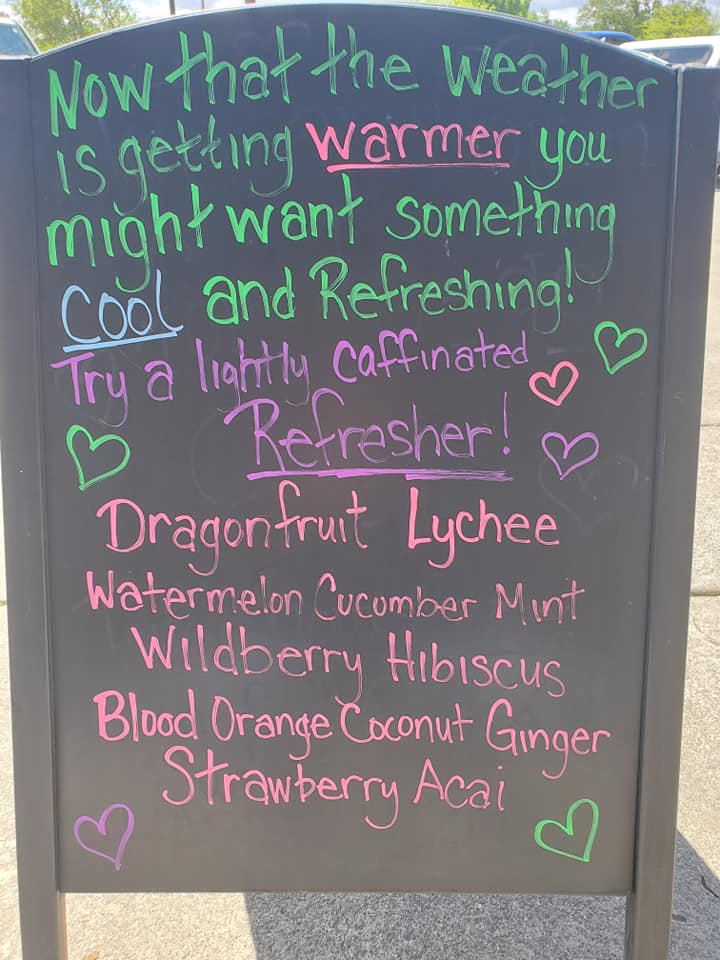 Now that the weather
is getting warmer you
might want something
cool and Refreshing!
Try a lightly caffinated
Refresher!
Dragonfruit Lychee
Watermelon Cucumber Mint
Wildberry Hibiscus
Blood Orange Coconut Ginger
Strawberry Acai